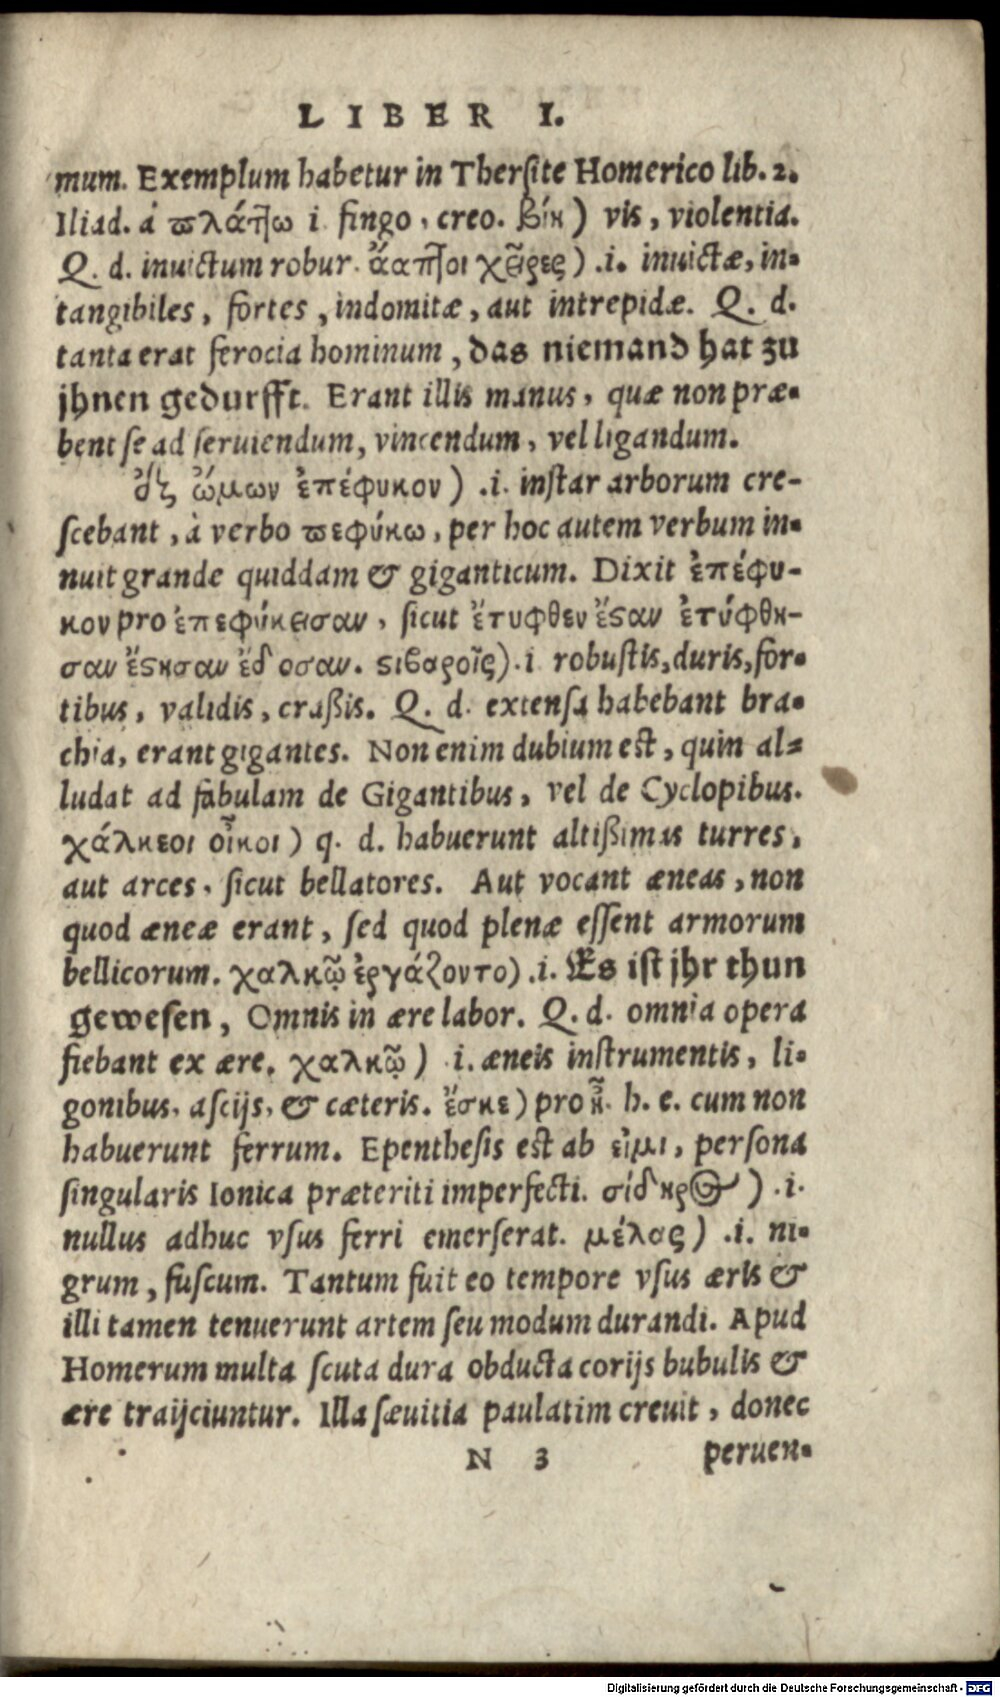 LIBER I.
mum. Exemplum habetur in Thersite Homerico lib. 2.
Iliad. à ϖλάτ]ω i. fingo, creo. βίη) vis, violentia.
Q. d. inuictum robur. ἄαπ]οι χεῖρες) .i. inuictæ, in-
tangibiles, fortes, indomitæ, aut intrepidæ. Q. d.
tanta erat ferocia hominum, das niemand hat zu
jhnen gedurfft. Erant illis manus, quæ non præ-
bent se ad seruiendum, vincendum, vel ligandum.
ἐξ ὤμων ἐπέφυκον) .i. instar arborum cre-
scebant, à verbo ϖεφύκω, per hoc autem verbum in-
nuit grande quiddam & giganticum. Dixit ἐπέφυ-
κον pro ἐπεφύκεισαν, sicut ἔτυφθεν ἔϛαν ἐτύφθη-
σαν ἔϛησαν ἔδοσαν. ϛιβαροῖς) .i robustis, duris, for-
tibus, validis, craßis. Q. d. extensa habebant bra-
chia, erant gigantes. Non enim dubium est, quin al-
ludat ad fabulam de Gigantibus, vel de Cyclopibus.
χάλκεοι οἶκοι) q. d. habuerunt altißimas turres,
aut arces, sicut bellatores. Aut vocant æneas, non
quod æneæ erant, sed quod plenæ essent armorum
bellicorum. χαλκῷ ἐργάζοντο) .i. Es ist jhr thun
gewesen, Omnis in ære labor. Q. d. omnia opera
fiebant ex ære. χαλκῷ) .i. æneis instrumentis, li-
gonibus, ascijs, & cæteris. ἔσκε) pro ἦ. h. e. cum non
habuerunt ferrum. Epenthesis est ab εἰμι, persona
singularis Ionica præteriti imperfecti. σίδηρος) .i.
nullus adhuc vsus ferri emerserat. μέλας) .i. ni-
grum, fuscum. Tantum fuit eo tempore vsus æris &
illi tamen tenuerunt artem seu modum durandi. Apud
Homerum multa scuta dura obducta corijs bubulis &
ære traijciuntur. Illa sæuitia paulatim creuit, donec
N 3 peruen-
Digitalisierung gefördert durch die Deutsche Forschungsgemeinschaft - DFG